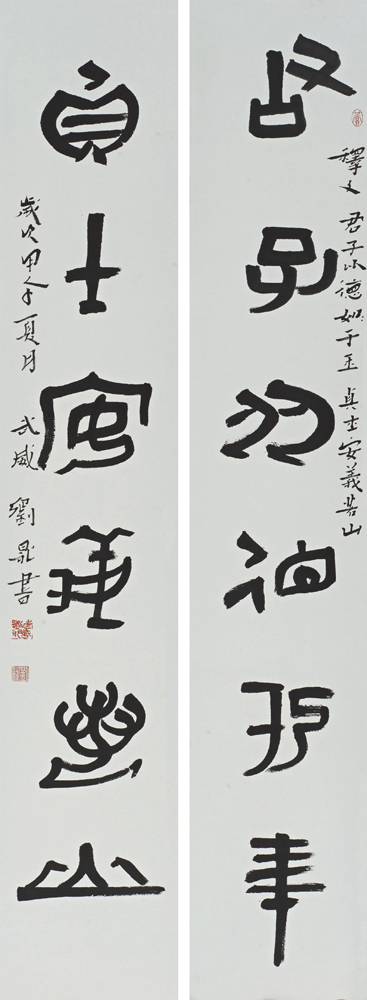 君子比德于玉
釋文 君子比德于玉 貞士安義若山
貞士安義若山
歲次甲午夏月 武威 劉書